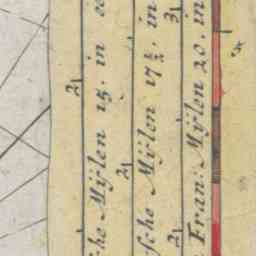 che Mijlen 15. in
2
sche Mijlen 17½. in
2
3
Fran: Mijlen 20. in
2